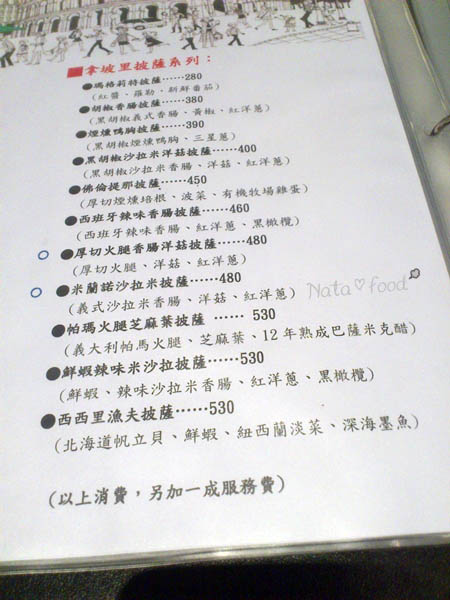 ■拿坡里披薩系列：
●瑪格莉特披薩……280
(紅醬、羅勒、新鮮番茄)
●胡椒香腸披薩……380
(黑胡椒義式香腸、黃椒、紅洋蔥)
●煙燻鴨胸披薩……390
(黑胡椒煙燻鴨胸、三星蔥)
●黑胡椒沙拉米洋菇披薩……400
(黑胡椒沙拉米香腸、洋菇、紅洋蔥)
●佛倫提那披薩……450
(厚切煙燻培根、波菜、有機牧場雞蛋)
●西班牙辣味香腸披薩……460
(西班牙辣味香腸、紅洋蔥、黑橄欖)
●厚切火腿香腸洋菇披薩……480
(厚切火腿、洋菇、紅洋蔥)
●米蘭諾沙拉米披薩……480
(義式沙拉米香腸、洋菇、紅洋蔥)
Nata♡food
●帕瑪火腿芝麻葉披薩 …… 530
(義大利帕馬火腿、芝麻葉、12年熟成巴薩米克醋)
●鮮蝦辣味米沙拉披薩……530
(鮮蝦、辣味沙拉米香腸、紅洋蔥、黑橄欖)
●西西里漁夫披薩……530
(北海道帆立貝、鮮蝦、紐西蘭淡菜、深海墨魚)
(以上消費，另加一成服務費)